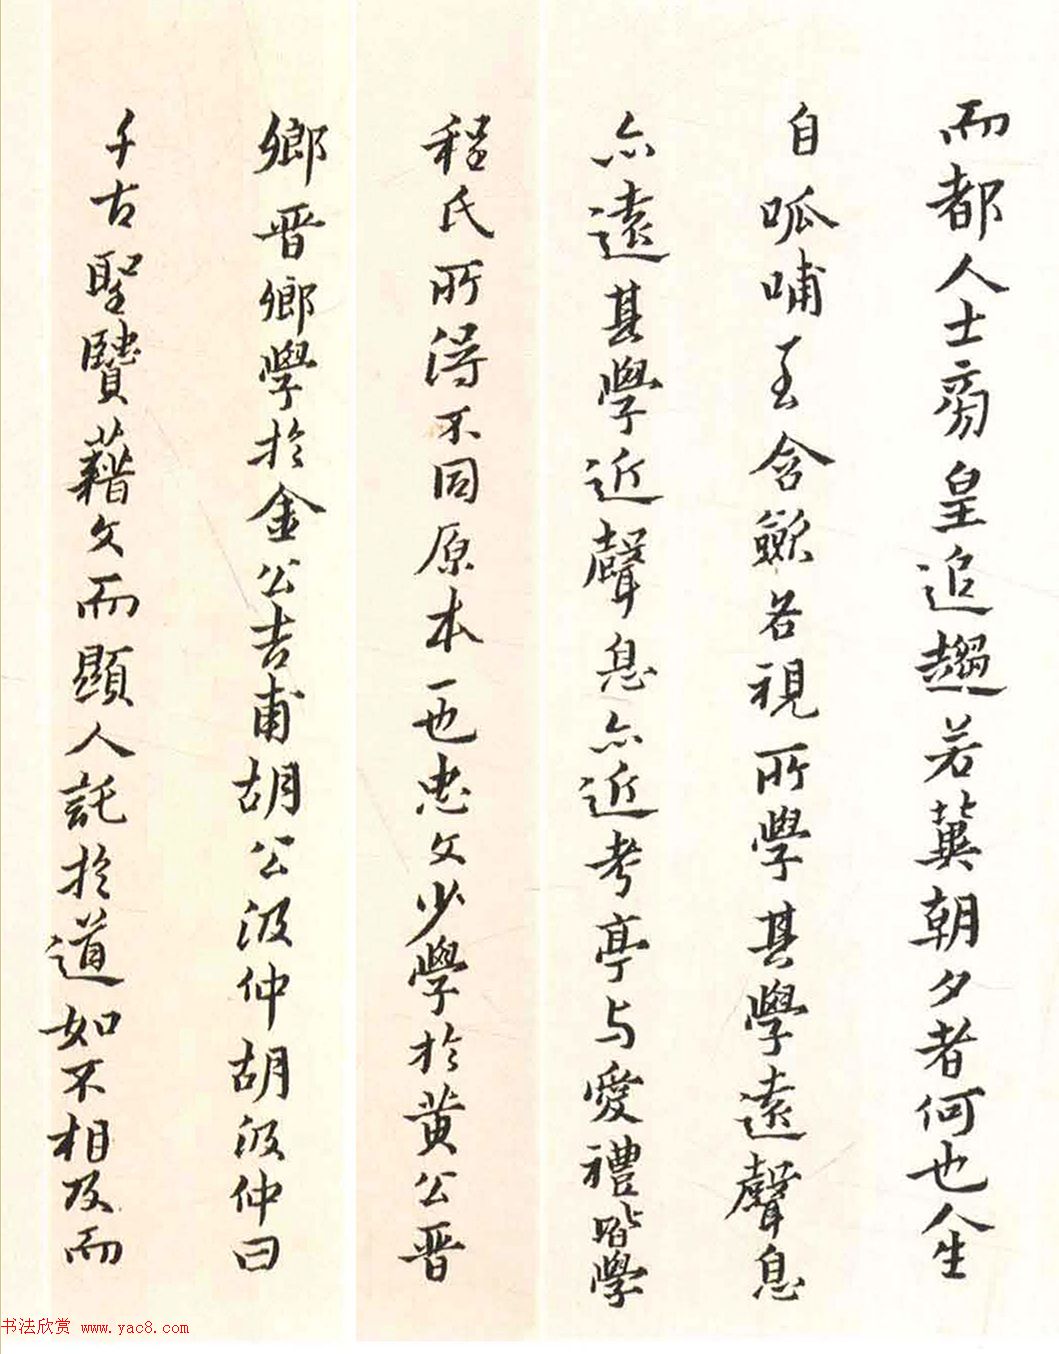 而都人士旁皇追趨若冀朝夕者何也人生
自呱哺至含歛名視所學其學遠聲息
亦遠其學近聲息亦近考亭与愛禮皆學
程氏所得不同原本一也忠文少學於黄公晋
鄉晋鄉學於金公吉甫胡公汲仲胡汲仲曰
千古聖贒藉文而顯人託於道如不相及而
书法欣赏 www.yac8.com